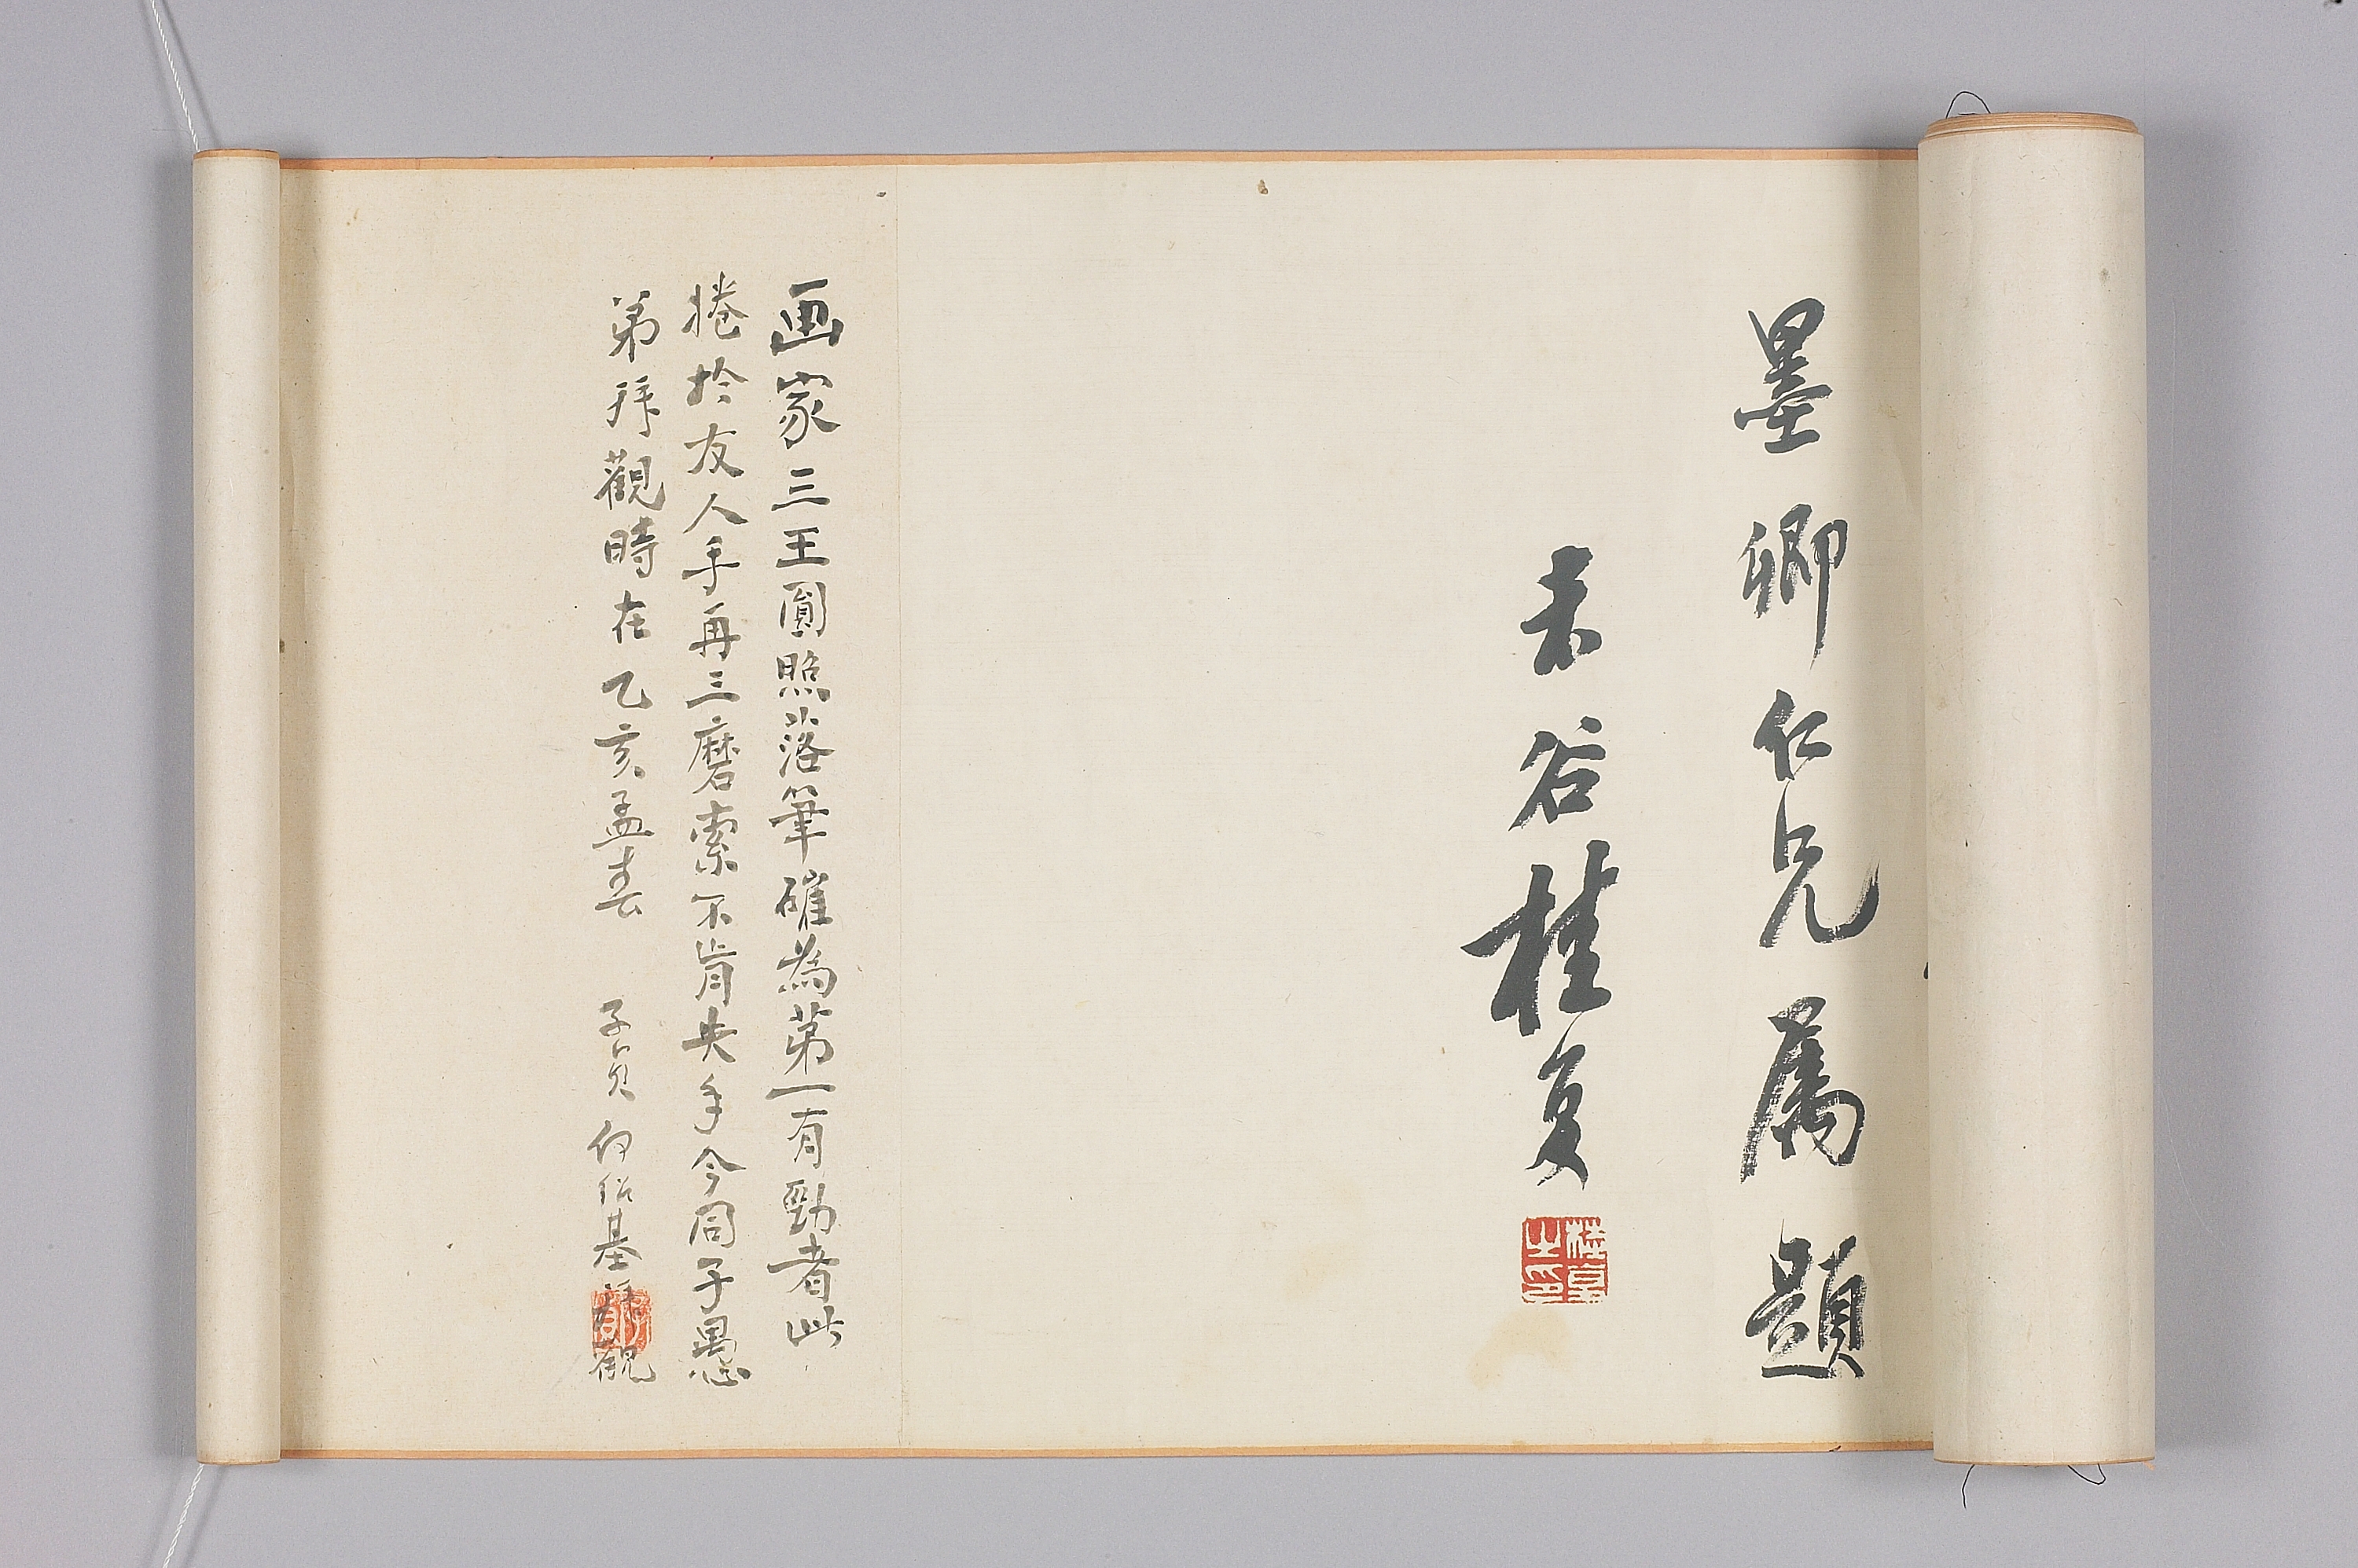 墨卿仁兄属題
未谷桂复
桂复之印
画家三王圓照落筆確為第一有勁者此
捲於友人手再三磨索不肯失手今同子愚
弟拜觀時在乙亥孟春 子貞何紹基拜觀